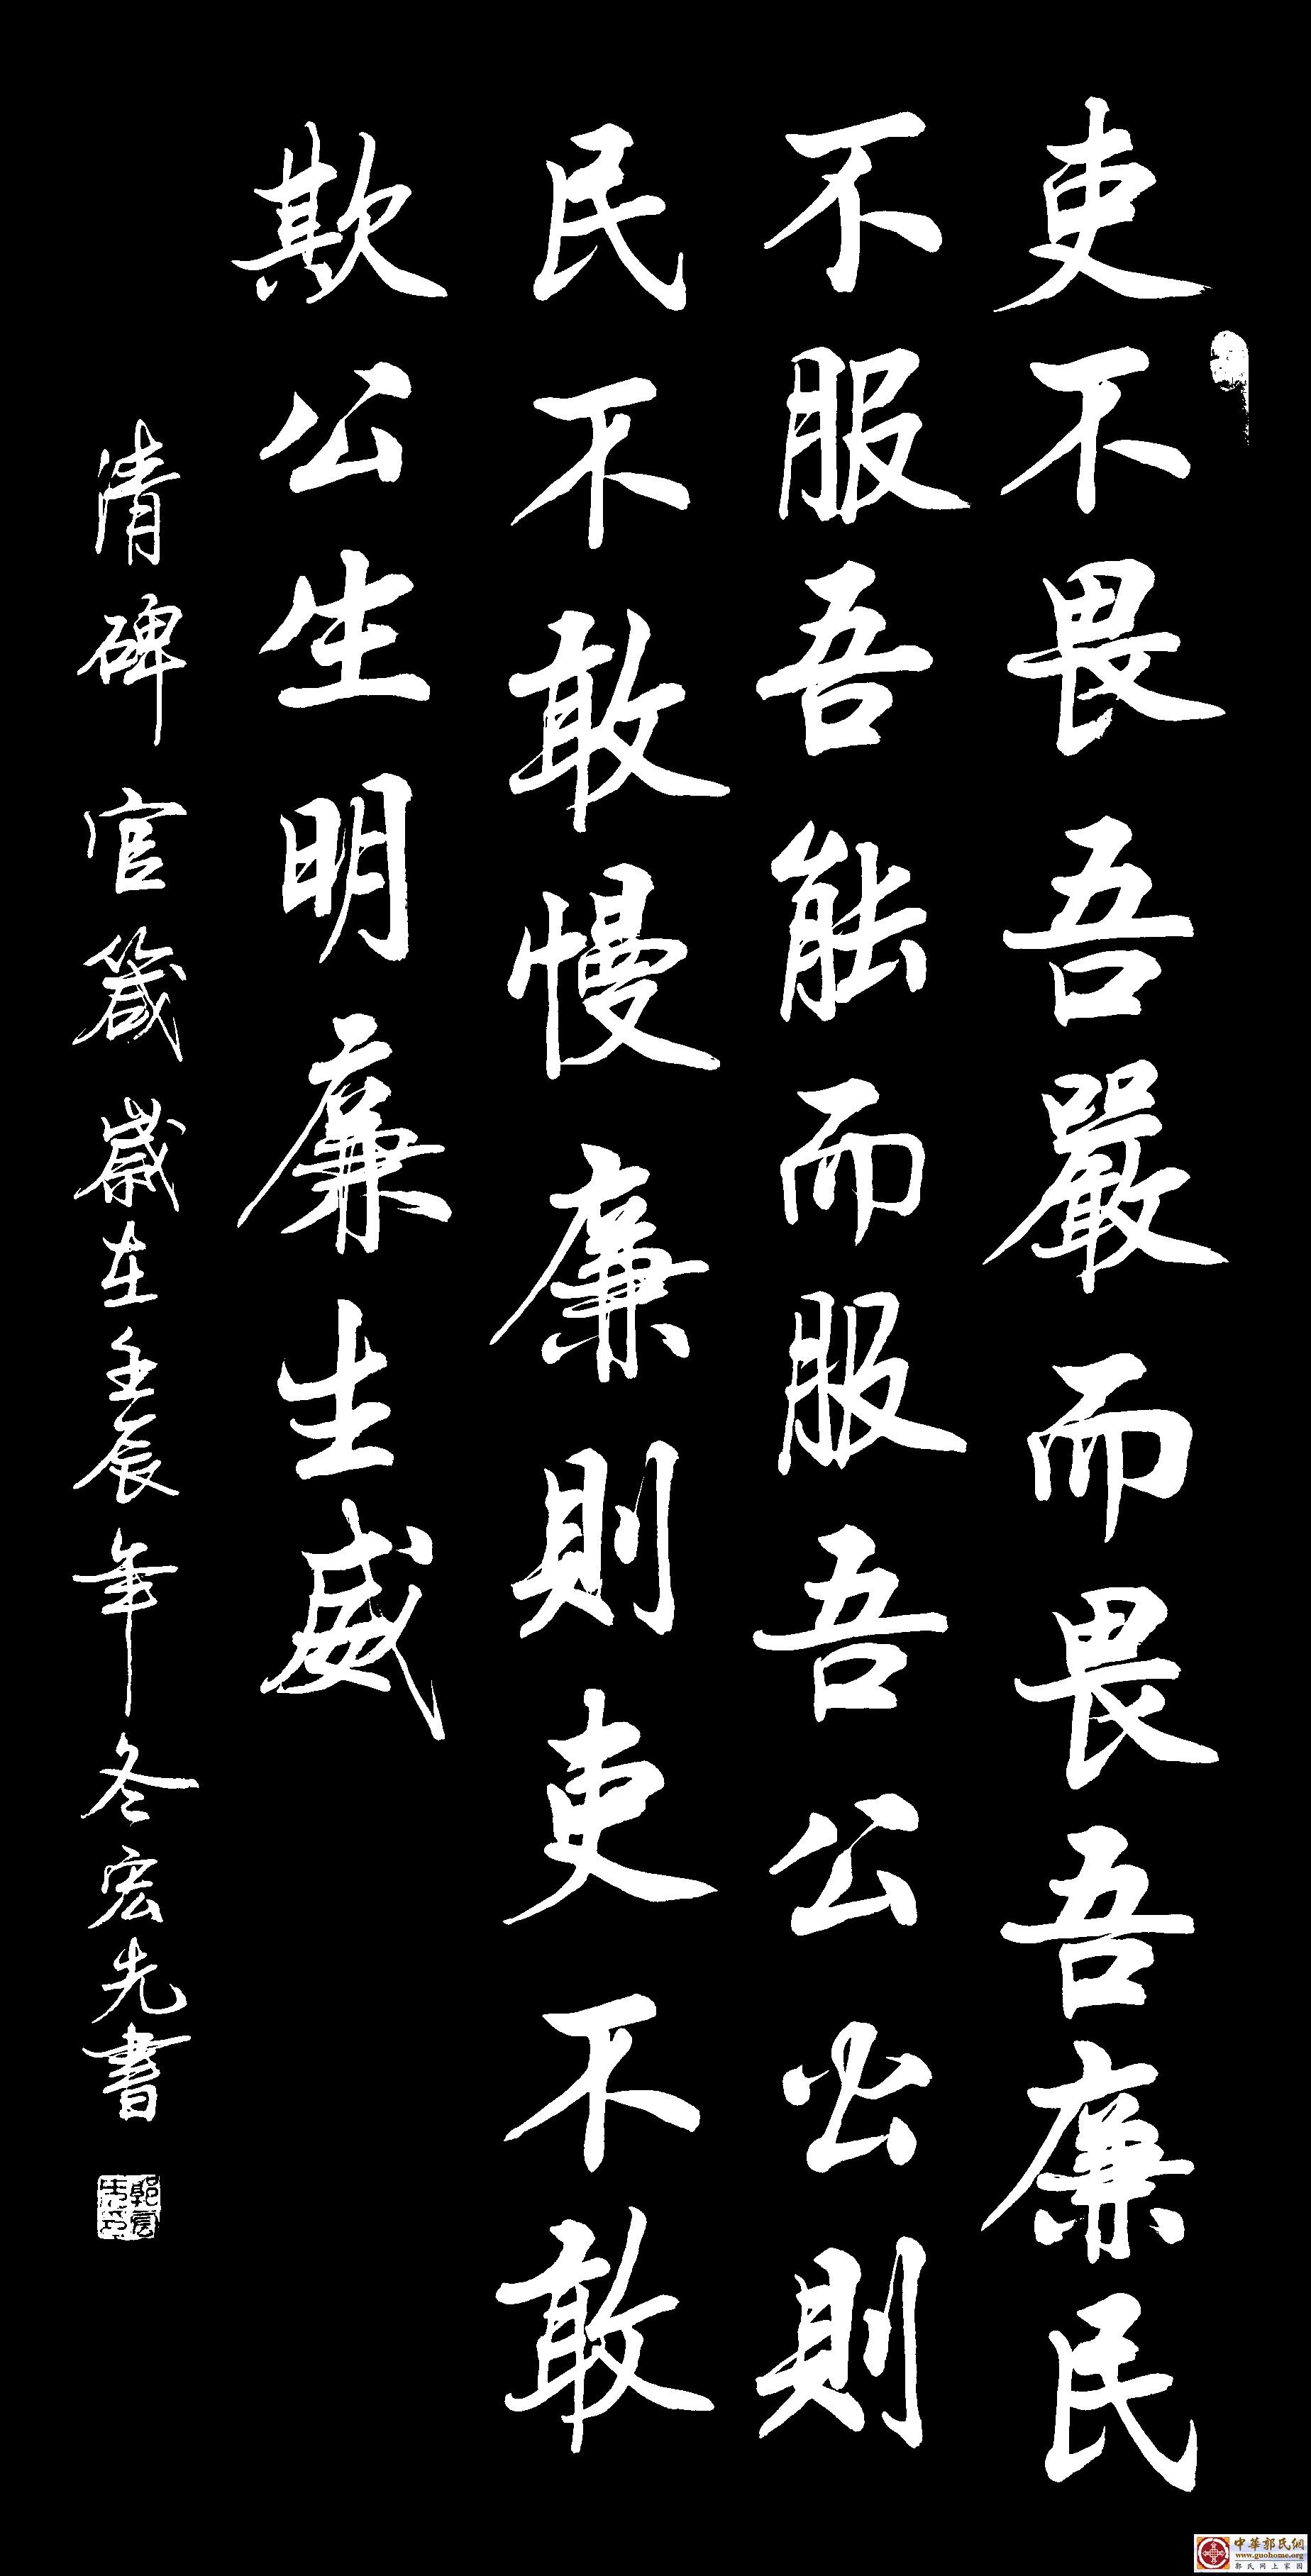 吏不畏吾嚴而畏吾廉民
不服吾能而服吾公公則
民不敢慢廉則吏不敢
欺公生明廉生威
清碑官箴歲在壬辰年冬宏先書
中華郭氏網
www.guohome.org
郭氏网上家园